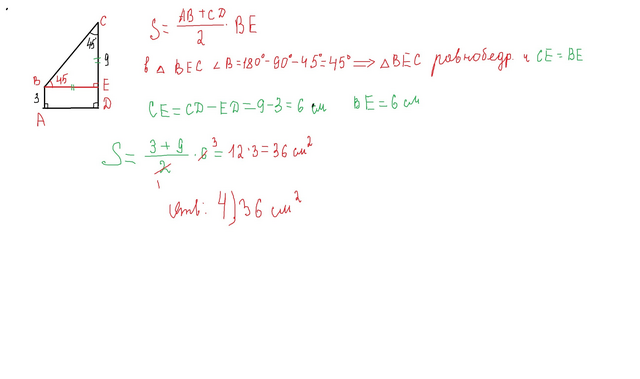 C
45
9
B 45 E
3
A D
S = (AB + CD)/2 · BE
в △ BEC ∠B = 180° - 90° - 45° = 45° ⟹ △ BEC равнобедр. и CE = BE
CE = CD - ED = 9 - 3 = 6 см BE = 6 см
S = (3 + 9)/2 · 6 = 12 · 3 = 36 см²
3
1
Отв: 4) 36 см²